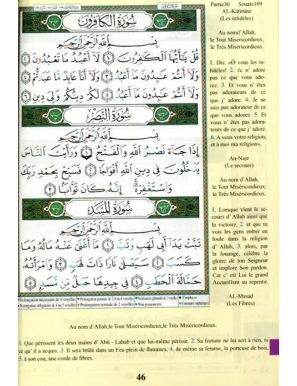 Partie30 Sourate109
AL-Kâfirûne
(Les infidèles)
Au nomd'Allah,
le Tout Miséricordieux,
le Très Miséricordieux.
1. Dis: «Ô vous les in-
fidèles! 2. Je n' adore
pas ce que vous ado-
rez. 3. Et vous n' êtes
pas adorateurs de ce
que j' adore. 4. Je ne
suis pas adorateur de ce
que vous adorez. 5. Et
vous n' êtes pas adora-
teurs de ce que j' adore.
6. A vous votre religion,
et à moi ma religion».
An-Naṣr
(Le secours)
Au nom d'Allah,
le Tout Miséricordieux,
le Très Miséricordieux.
1. Lorsque vient le se-
cours d' Allah ainsi que
la victoire, 2. et que tu
vois les gens entrer en
foule dans la religion
d' Allah, 3. alors, par
la louange, célèbre la
gloire de ton Seigneur
et implore Son pardon.
Car c' est Lui le grand
Accueillant au repentir.
AL-Masad
(Les Fibres)
سُورَةُ الكَافِرُونَ
بِسْمِ اللَّهِ الرَّحْمَٰنِ الرَّحِيمِ
قُلْ يَا أَيُّهَا الْكَافِرُونَ ١ لَا أَعْبُدُ مَا تَعْبُدُونَ ٢
وَلَا أَنتُمْ عَابِدُونَ مَا أَعْبُدُ ٣ وَلَا أَنَا عَابِدٌ مَّا عَبَدتُّمْ ٤
وَلَا أَنتُمْ عَابِدُونَ مَا أَعْبُدُ ٥ لَكُمْ دِينُكُمْ وَلِيَ دِينِ ٦
سُورَةُ النَّصْرِ
بِسْمِ اللَّهِ الرَّحْمَٰنِ الرَّحِيمِ
إِذَا جَاءَ نَصْرُ اللَّهِ وَالْفَتْحُ ١ وَرَأَيْتَ النَّاسَ
يَدْخُلُونَ فِي دِينِ اللَّهِ أَفْوَاجًا ٢ فَسَبِّحْ بِحَمْدِ رَبِّكَ
وَاسْتَغْفِرْهُ إِنَّهُ كَانَ تَوَّابًا ٣
سُورَةُ المَسَدِ
بِسْمِ اللَّهِ الرَّحْمَٰنِ الرَّحِيمِ
تَبَّتْ يَدَا أَبِي لَهَبٍ وَتَبَّ ١ مَا أَغْنَىٰ عَنْهُ مَالُهُ وَمَا
كَسَبَ ٢ سَيَصْلَىٰ نَارًا ذَاتَ لَهَبٍ ٣ وَامْرَأَتُهُ
حَمَّالَةَ الْحَطَبِ ٤ فِي جِيدِهَا حَبْلٌ مِّن مَّسَدٍ ٥
Au nom d'Allah,le Tout Miséricordieux,le Très Miséricordieux.
1. Que périssent les deux mains d' Abû - Lahab et que lui-même périsse. 2. Sa fortune ne lui sert à rien, ni
ce qu' il a acquis. 3. Il sera brûlé dans un Feu plein de flammes, 4. de même sa femme, la porteuse de bois,
5. à son cou, une corde de fibres.
46